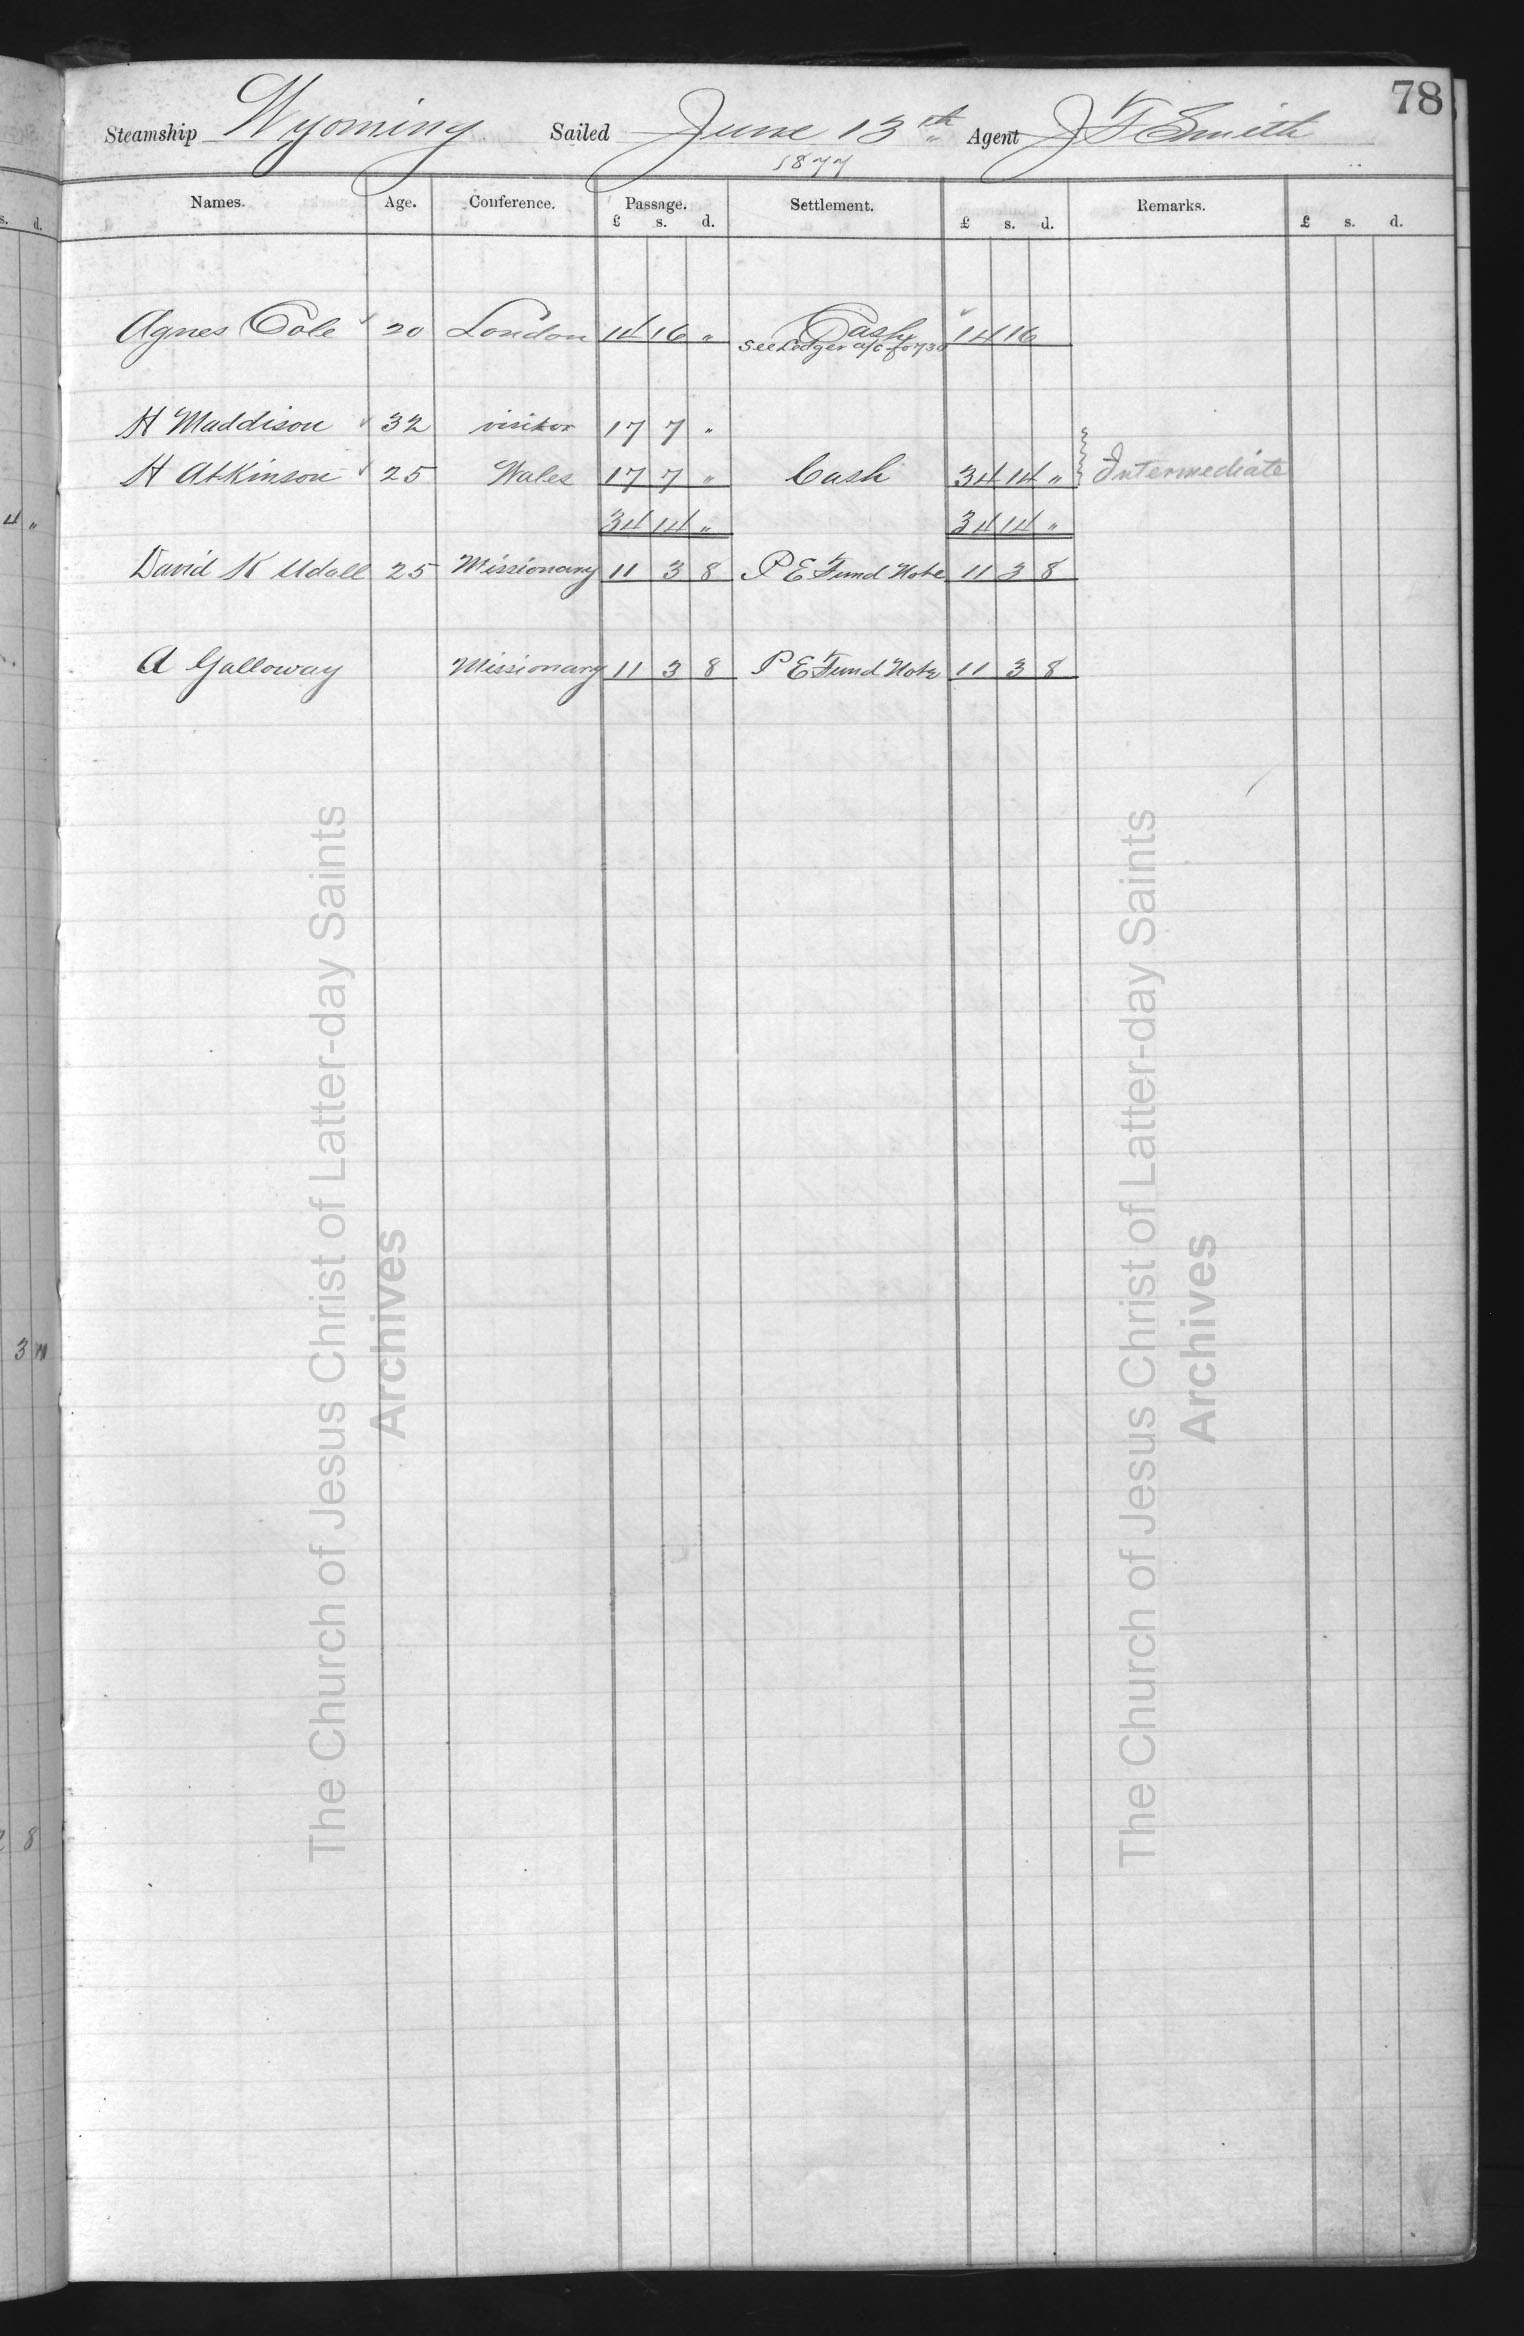 78
Steamship Wyoming Sailed June 13th Agent J F Smith
1877
Names. Age. Conference. Passage. Settlement. Remarks.
£ s. d. £ s. d. £ s. d.
s. d.
Agnes Cole 20 London 14 16 " Cash 14 16
See Ledger a/c fo 730
H Maddison 32 visitor 17 7 "
H Atkinson 25 Wales 17 7 " Cash 34 14 " Intermediate
34 14 " 34 14 "
4 "
David K Udall 25 Missionary 11 3 8 P E Fund Note 11 3 8
A Galloway Missionary 11 3 8 P E Fund Note 11 3 8
3
8
The Church of Jesus Christ of Latter-day Saints
Archives
The Church of Jesus Christ of Latter-day Saints
Archives